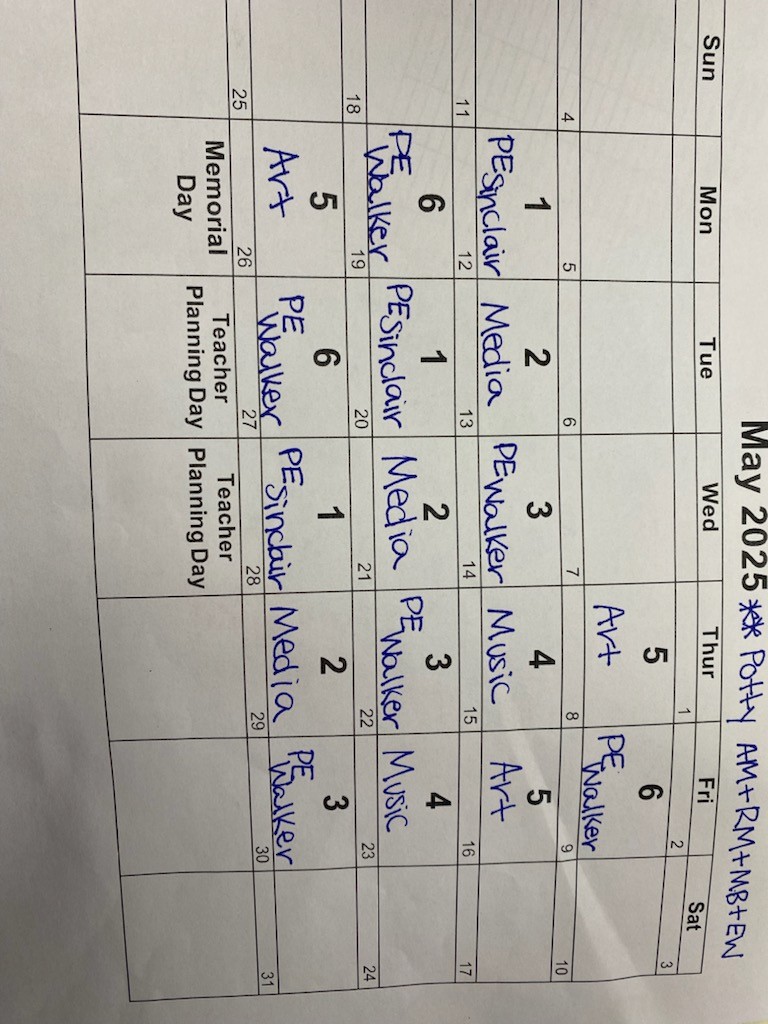 May 2025 ** Potty AM+RM+MB+EW
Sun Mon Tue Wed Thur Fri Sat
1 2 3
5 6
Art PE Walker
4 5 6 7 8 9 10
1 2 3 4 5
PE Sinclair Media PE Walker Music Art
11 12 13 14 15 16 17
6 1 2 3 4
PE Walker PE Sinclair Media PE Walker Music
18 19 20 21 22 23 24
5 6 1 2 3
Art PE Walker PE Sinclair Media PE Walker
25 26 27 28 29 30 31
Memorial Teacher Teacher
Day Planning Day Planning Day